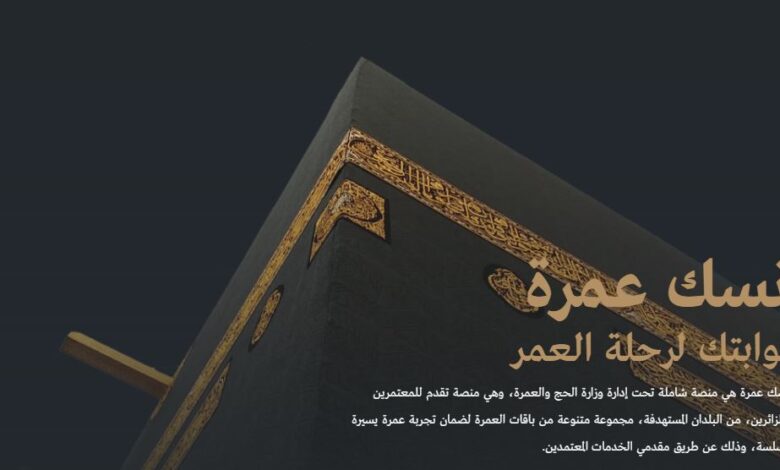 نسك عمرة
وابتك لرحلة العمر
سك عمرة هي منصة شاملة تحت إدارة وزارة الحج والعمرة، وهي منصة تقدم للمعتمرين
لزائرين، من البلدان المستهدفة، مجموعة متنوعة من باقات العمرة لضمان تجربة عمرة يسيرة
سلسة، وذلك عن طريق مقدمي الخدمات المعتمدين.